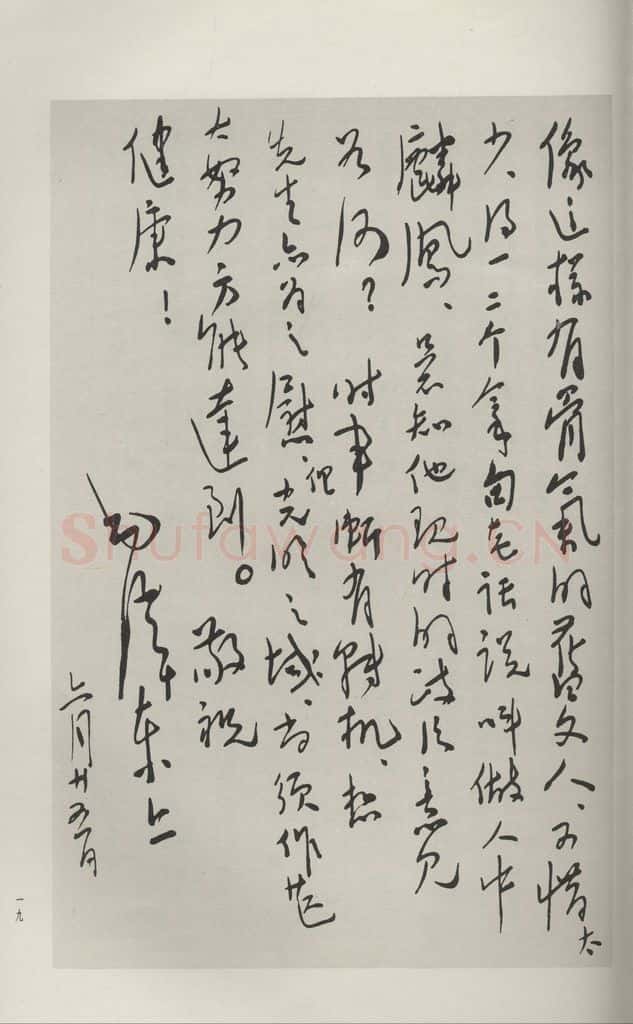 像这样有骨氣的舊文人、可惜太
少、得一二个拿句老话说叫做人中
麟鳳、不知他现时的政治意见
若何？时事渐有转机、想
先生亦为之慰、但光明之域、尚须作甚
大努力方能達到。敬祝
健康！
毛泽东上
六月廿五日
一九
Shufawang.CN